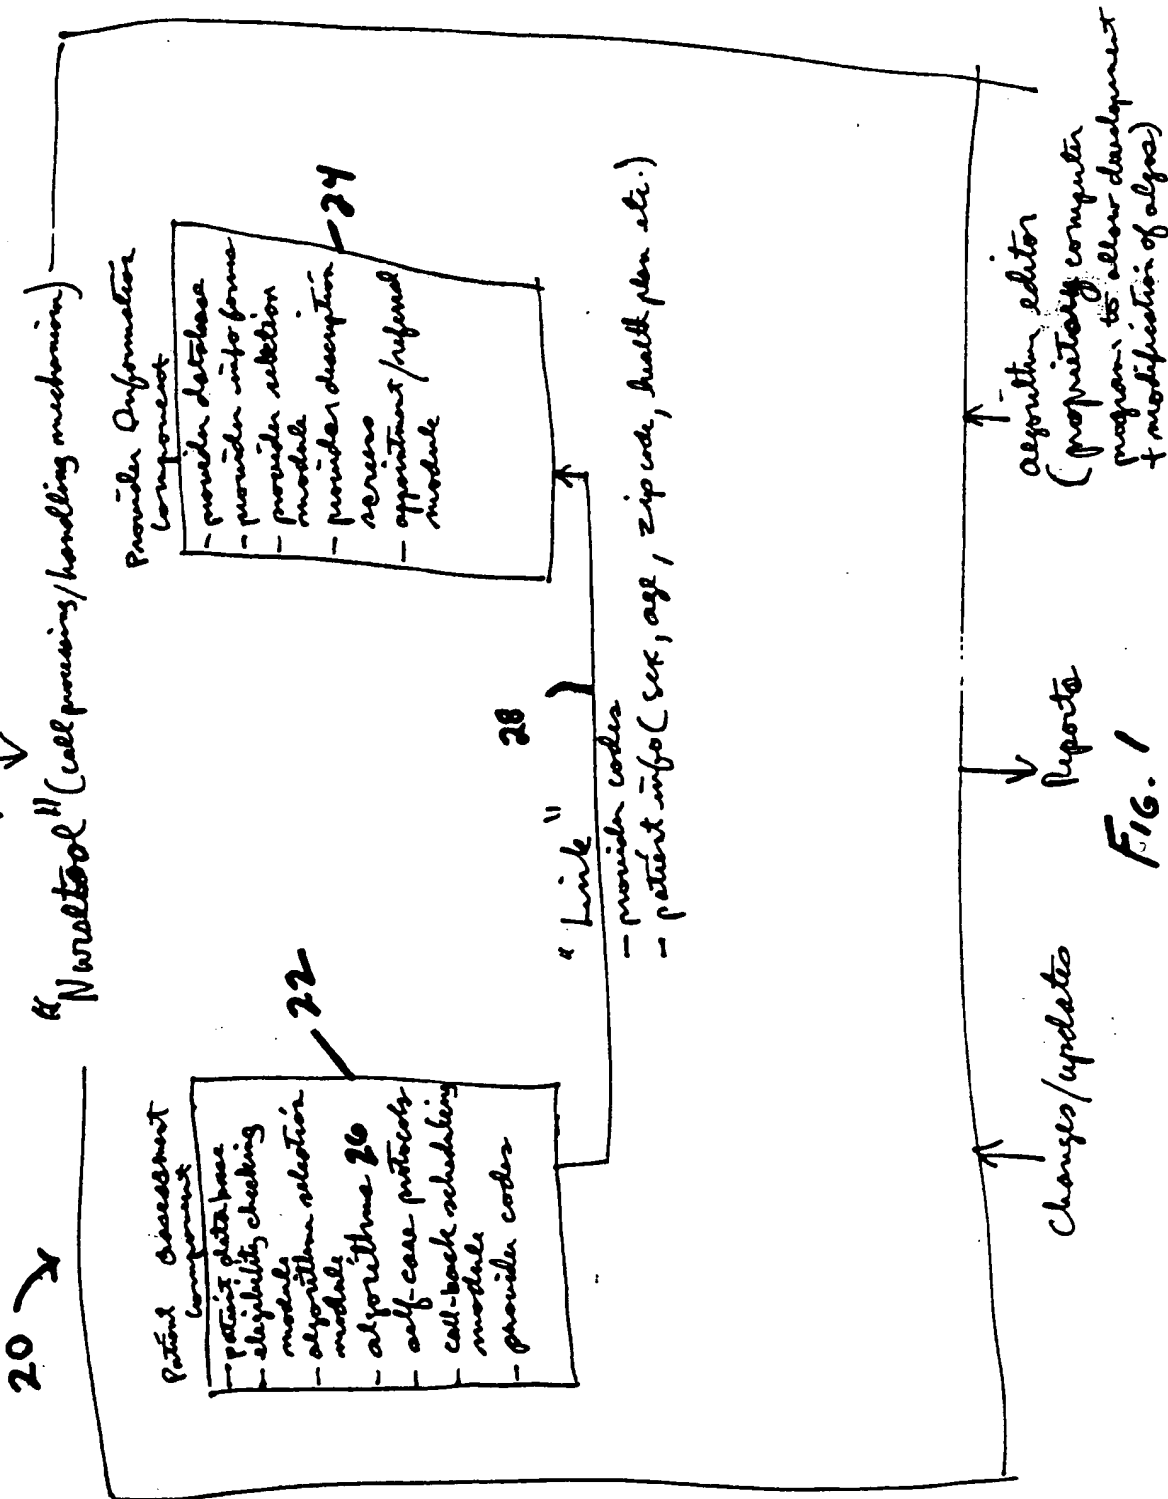 20
"Nursetool" (call processing/handling mechanism)
Patient assessment
component
- patient database
- eligibility checking
module
- algorithm selection
module
- algorithms 26
- self-care protocols
- call-back scheduling
module
- provider codes
22
Provider Information
component
- provider database
- provider info forms
- provider selection
module
- provider description
screens
- appointment/referral
module
24
"Link"
28
- provider codes
- patient info (sex, age, zip code, health plan etc.)
Changes/updates
Reports
algorithm editor
(proprietary computer
program to allow development
+ modification of algos)
FIG. 1